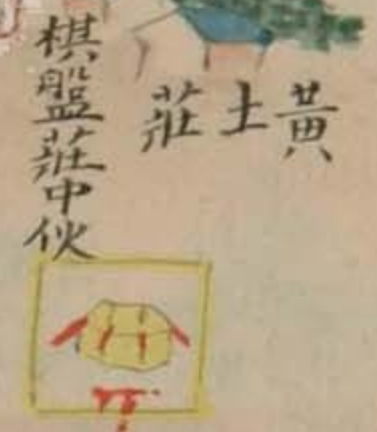 黃土莊
棋盤莊中伙